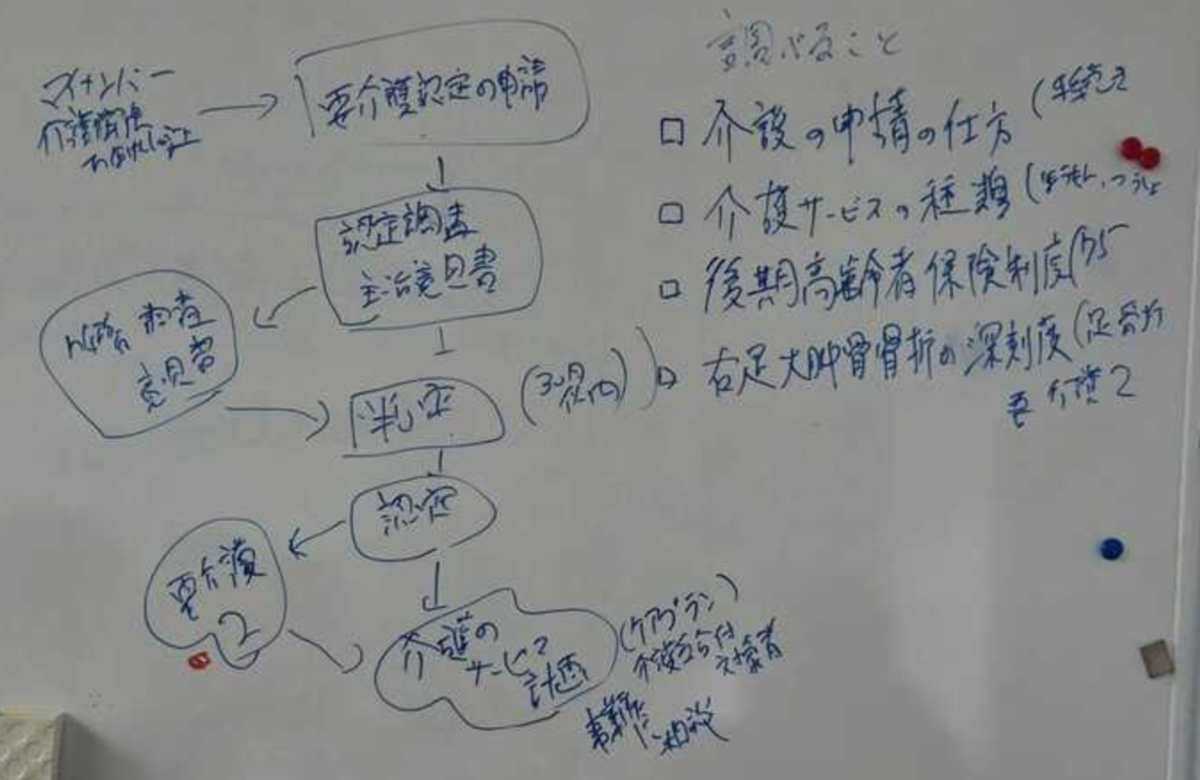 マイナンバー
介護保険
要介護認定の申請
認定調査
主治意見書
調査
意見書
判定
(30日以内)
認定
要介護
2
介護の
サービス
計画
(ケアプラン)
支援者
事業所に
相談
調べること
□ 介護の申請の仕方 (手続き
□ 介護サービスの種類 (
□ 後期高齢者保険制度 (75
□ 右足大腿骨骨折の深刻度 (
要介護2